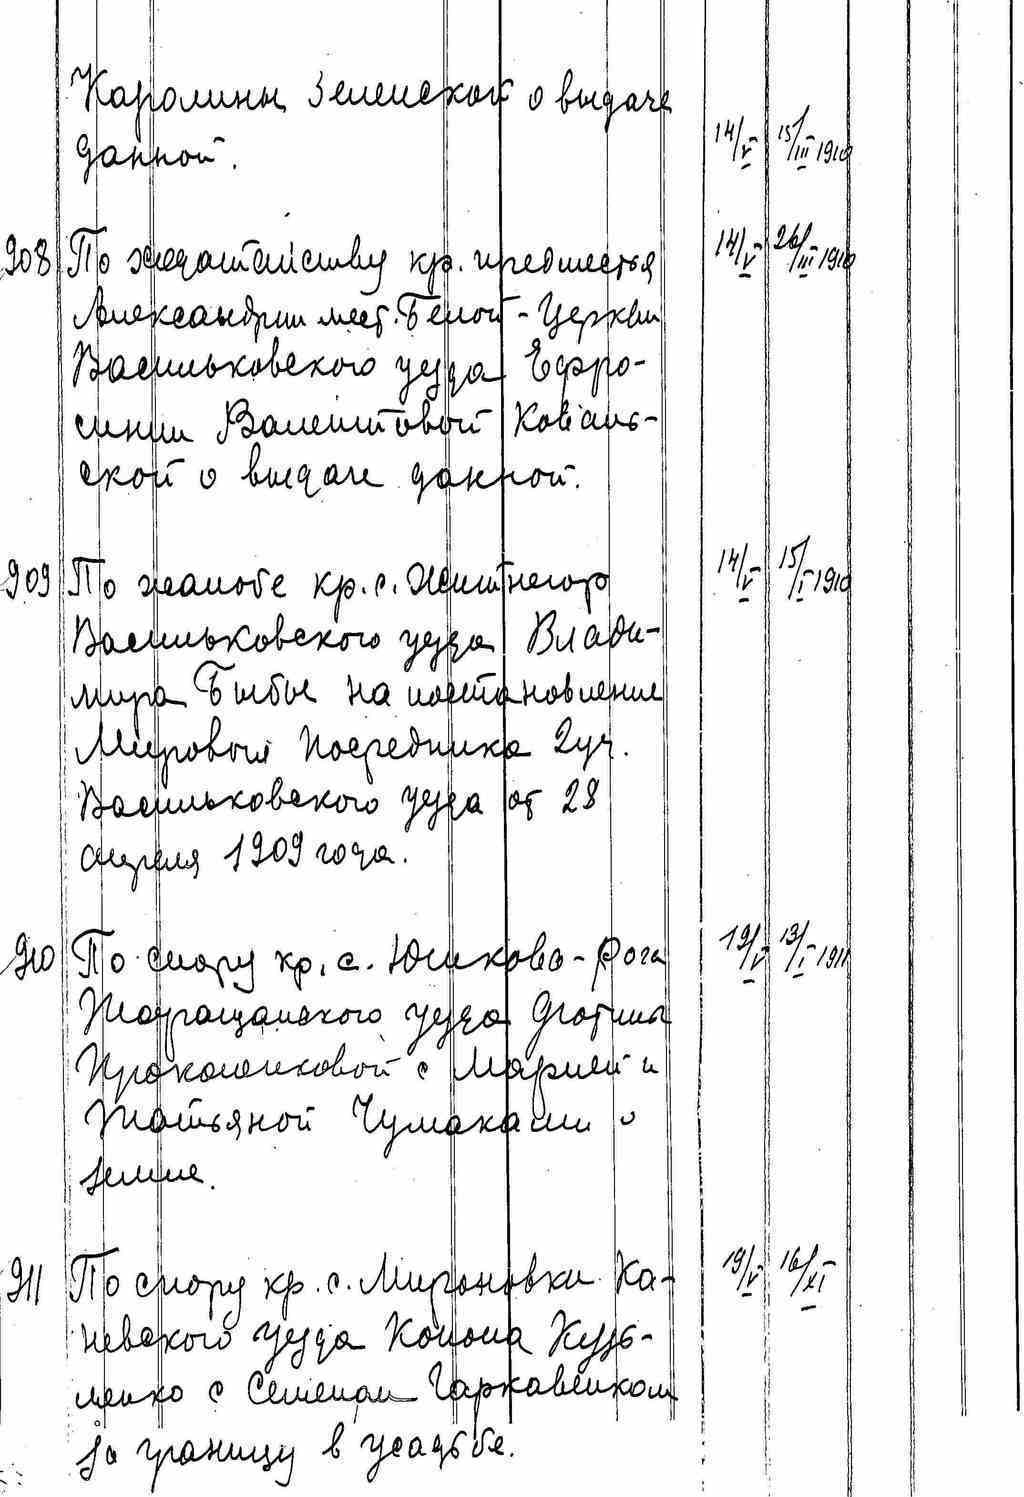 Каролины Зеленской о выдаче
данной. 14/V 15/III 1910
908 По ходатайству кр. предместья 14/V 26/III 1910
Александрии мест. Белой-Церкви
Васильковского уезда Ефро-
синии Валентовой Коваль-
ской о выдаче данной.
909 По жалобе кр. с. Житнегор 14/V 15/I 1910
Васильковского уезда Влади-
мира Бибы на постановление
Мирового Посредника 2 уч.
Васильковского уезда от 28
апреля 1909 года.
910 По спору кр. с. Юшкова-Рога 19/V 13/I 1911
Таращанского уезда
Прокопенковой с Марией и
Татьяной Чумаками о
земле.
911 По спору кр. с. Мироновки Ка- 19/V 16/XI
невского уезда Конона Кузь-
менко с Семеном Гаркавенком
за границу в усадьбе.